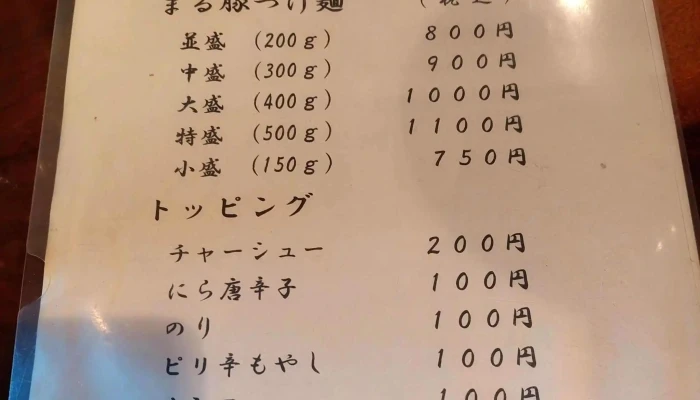 まる豚つけ麺 (税込)
並盛 (200g) 800円
中盛 (300g) 900円
大盛 (400g) 1000円
特盛 (500g) 1100円
小盛 (150g) 750円
トッピング
チャーシュー 200円
にら唐辛子 100円
のり 100円
ピリ辛もやし 100円
100円